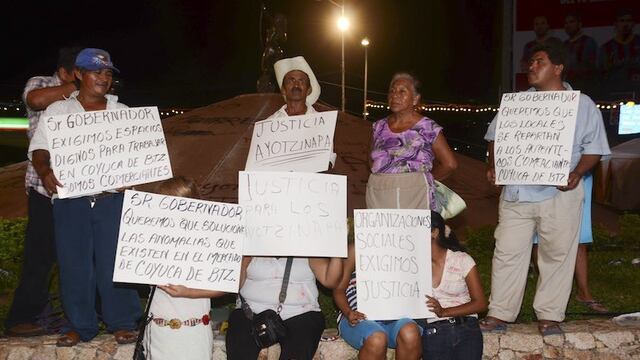 Sr GOBERNADOR
EXIGIMOS ESPACIOS
DIGNOS PARA TRABAJAR
EN COYUCA DE BTZ
SOMOS COMERCIANTES
JUSTICIA
AYOTZINAPA
Sr. GOBERNADOR
QUEREMOS QUE
LOS LOCALES
SE REPORTAN
A LOS AUTENTI-
COS COMERCIANTES
DE COYUCA DE BTZ
Sr. GOBERNADOR
QUEREMOS QUE SOLUCIONE
LAS ANOMALIAS QUE
EXISTEN EN EL MERCADO
DE COYUCA DE BTZ.
JUSTICIA
PARA LOS
AYOTZINAPA
ORGANIZACIONES
SOCIALES
EXIGIMOS
JUSTICIA